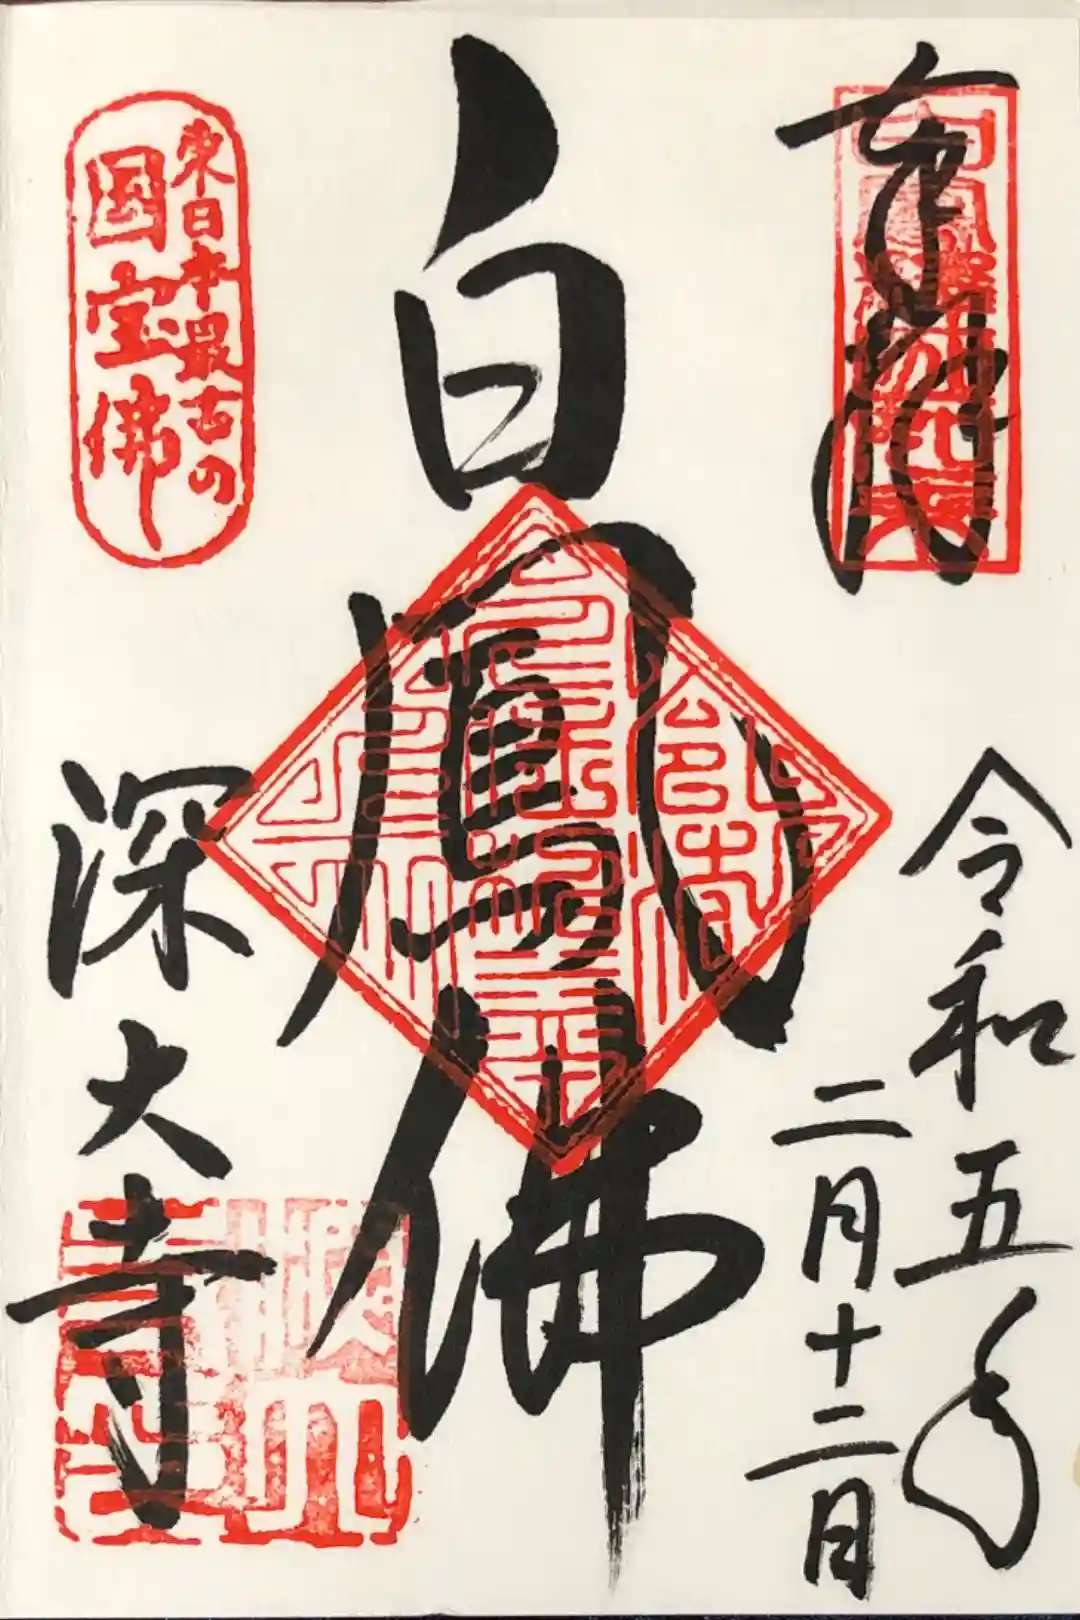 奉拝
令和五年
二月十二日
白鳳佛
東日本最古の
国宝佛
深大寺